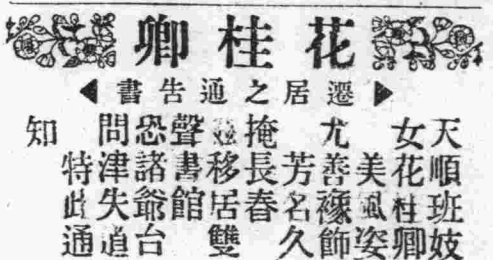 花桂卿
遷居之通告書
天順班妓
女花桂卿
美風姿
尤善襐飾
芳名久
掩長春
茲移居雙
聲書館
恐諸爺台
問津失道
特此通
知